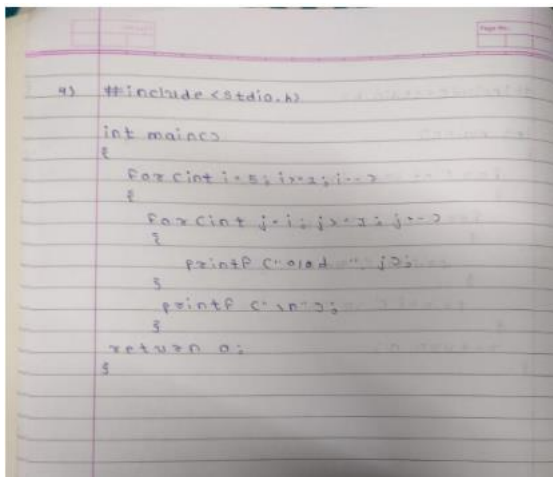 Page No.:
4) #include <stdio.h>
int main()
{
for (int i=5; i>=1; i--)
{
for (int j=i; j>=1; j--)
{
printf ("%d ", j);
}
printf ("\n");
}
return 0;
}